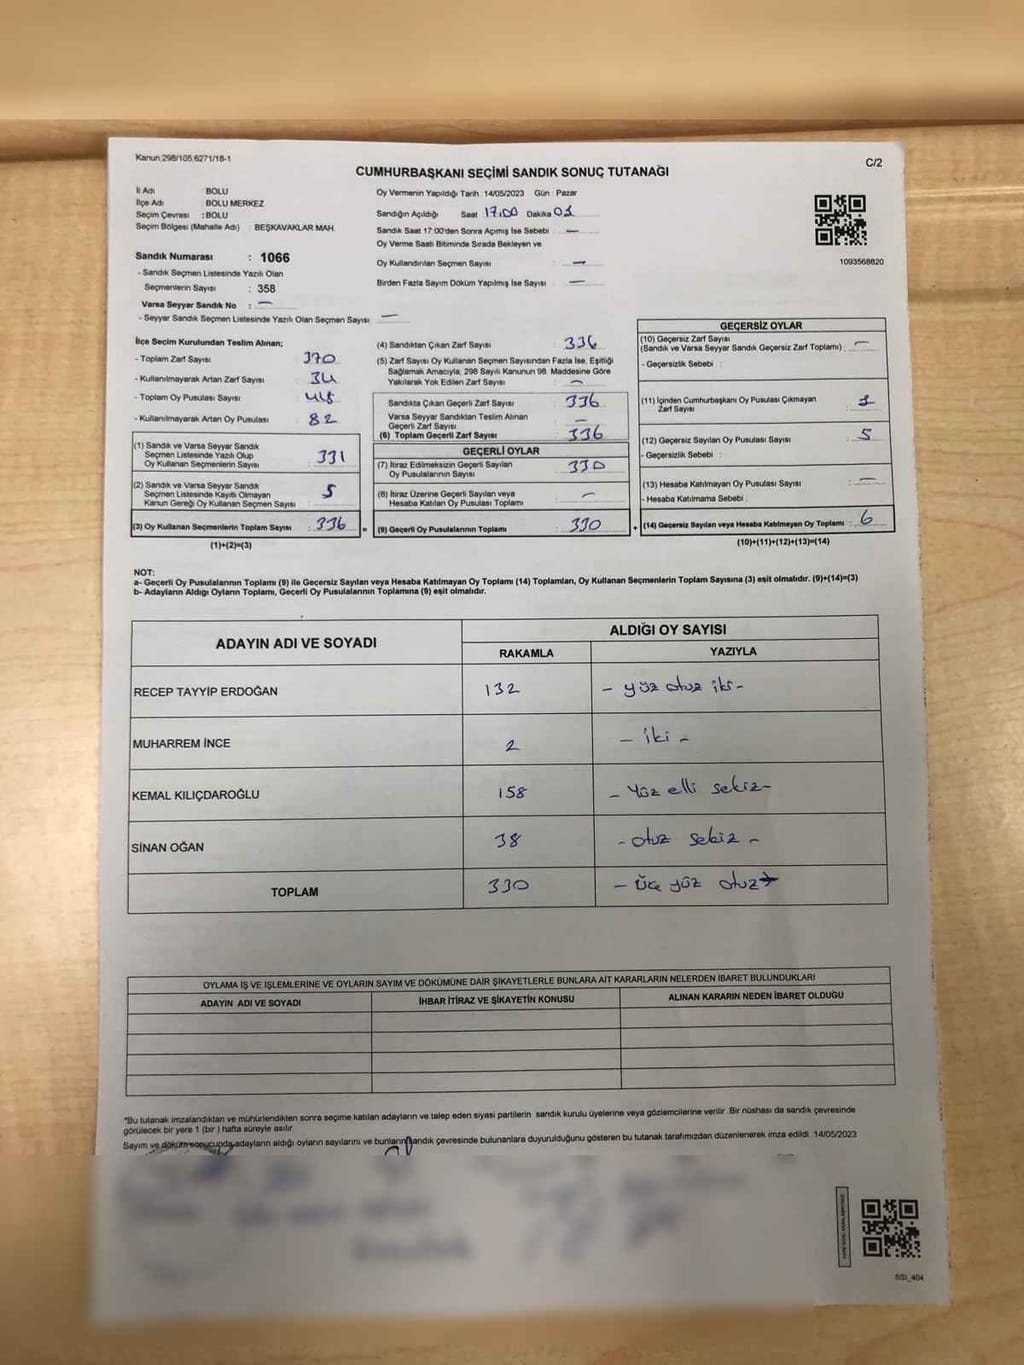 Kanun:298/105,6271/18-1
C/2
CUMHURBAŞKANI SEÇİMİ SANDIK SONUÇ TUTANAĞI
İl Adı : BOLU
İlçe Adı : BOLU MERKEZ
Seçim Çevresi : BOLU
Seçim Bölgesi (Mahalle Adı) : BEŞKAVAKLAR MAH.
Sandık Numarası : 1066
- Sandık Seçmen Listesinde Yazılı Olan
Seçmenlerin Sayısı : 358
Varsa Seyyar Sandık No : —
- Seyyar Sandık Seçmen Listesinde Yazılı Olan Seçmen Sayısı —
Oy Vermenin Yapıldığı Tarih : 14/05/2023 Gün : Pazar
Sandığın Açıldığı Saat 17:00 Dakika 01
Sandık Saat 17:00'den Sonra Açımış İse Sebebi : —
Oy Verme Saati Bitiminde Sırada Bekleyen ve
Oy Kullandırılan Seçmen Sayısı : —
Birden Fazla Sayım Döküm Yapılmış İse Sayısı : —
1093568820
İlçe Seçim Kurulundan Teslim Alınan;
- Toplam Zarf Sayısı : 370
- Kullanılmayarak Artan Zarf Sayısı : 34
- Toplam Oy Pusulası Sayısı : 418
- Kullanılmayarak Artan Oy Pusulası : 82
(1) Sandık ve Varsa Seyyar Sandık
Seçmen Listesinde Yazılı Olup
Oy Kullanan Seçmenlerin Sayısı : 331
(2) Sandık ve Varsa Seyyar Sandık
Seçmen Listesinde Kayıtlı Olmayan
Kanun Gereği Oy Kullanan Seçmen Sayısı : 5
(3) Oy Kullanan Seçmenlerin Toplam Sayısı : 336 =
(1)+(2)=(3)
(4) Sandıktan Çıkan Zarf Sayısı : 336
(5) Zarf Sayısı Oy Kullanan Seçmen Sayısından Fazla İse, Eşitliği
Sağlamak Amacıyla; 298 Sayılı Kanunun 98. Maddesine Göre
Yakılarak Yok Edilen Zarf Sayısı : —
Sandıkta Çıkan Geçerli Zarf Sayısı : 336
Varsa Seyyar Sandıktan Teslim Alınan
Geçerli Zarf Sayısı : —
(6) Toplam Geçerli Zarf Sayısı : 336
GEÇERLİ OYLAR
(7) İtiraz Edilmeksizin Geçerli Sayılan
Oy Pusulalarının Sayısı : 330
(8) İtiraz Üzerine Geçerli Sayılan veya
Hesaba Katılan Oy Pusulası Toplamı : —
(9) Geçerli Oy Pusulalarının Toplamı : 330 +
GEÇERSİZ OYLAR
(10) Geçersiz Zarf Sayısı
(Sandık ve Varsa Seyyar Sandık Geçersiz Zarf Toplamı) : —
- Geçersizlik Sebebi :
(11) İçinden Cumhurbaşkanı Oy Pusulası Çıkmayan
Zarf Sayısı : 1
(12) Geçersiz Sayılan Oy Pusulası Sayısı : 5
- Geçersizlik Sebebi :
(13) Hesaba Katılmayan Oy Pusulası Sayısı : —
- Hesaba Katılmama Sebebi :
(14) Geçersiz Sayılan veya Hesaba Katılmayan Oy Toplamı : 6
(10)+(11)+(12)+(13)=(14)
NOT:
a- Geçerli Oy Pusulalarının Toplamı (9) ile Geçersiz Sayılan veya Hesaba Katılmayan Oy Toplamı (14) Toplamları, Oy Kullanan Seçmenlerin Toplam Sayısına (3) eşit olmalıdır. (9)+(14)=(3)
b- Adayların Aldığı Oyların Toplamı, Geçerli Oy Pusulalarının Toplamına (9) eşit olmalıdır.
ADAYIN ADI VE SOYADI
ALDIĞI OY SAYISI
RAKAMLA YAZIYLA
RECEP TAYYİP ERDOĞAN 132 - yüz otuz iki -
MUHARREM İNCE 2 - iki -
KEMAL KILIÇDAROĞLU 158 - Yüz elli sekiz -
SİNAN OĞAN 38 - otuz sekiz -
TOPLAM 330 - Üç yüz otuz -
OYLAMA İŞ VE İŞLEMLERİNE VE OYLARIN SAYIM VE DÖKÜMÜNE DAİR ŞİKAYETLERLE BUNLARA AİT KARARLARIN NELERDEN İBARET BULUNDUKLARI
ADAYIN ADI VE SOYADI İHBAR İTİRAZ VE ŞİKAYETİN KONUSU ALINAN KARARIN NEDEN İBARET OLDUĞU
*Bu tutanak imzalandıktan ve mühürlendikten sonra seçime katılan adayların ve talep eden siyasi partilerin sandık kurulu üyelerine veya gözlemcilerine verilir. Bir nüshası da sandık çevresinde
görülecek bir yere 1 (bir) hafta süreyle asılır.
Sayım ve döküm sonucunda adayların aldığı oyların sayılarını ve bunların sandık çevresinde bulunanlara duyurulduğunu gösteren bu tutanak tarafımızdan düzenlenerek imza edildi. 14/05/2023
SSI_404